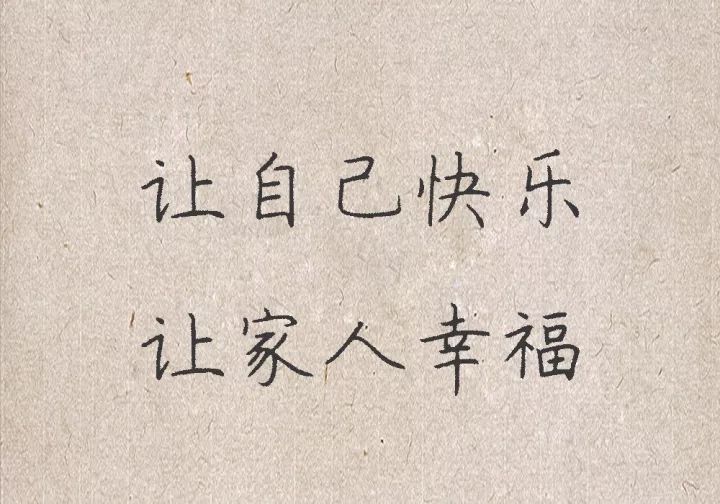 让自己快乐
让家人幸福